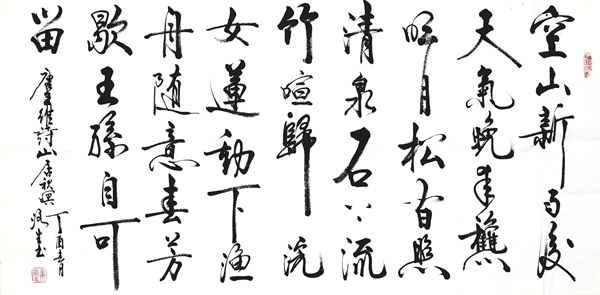 空山新雨後
天氣晚來秋
明月松間照
清泉石上流
竹喧歸浣
女蓮動下漁
舟隨意春芳
歇王孫自可
留
唐王維詩山居秋暝
丁酉